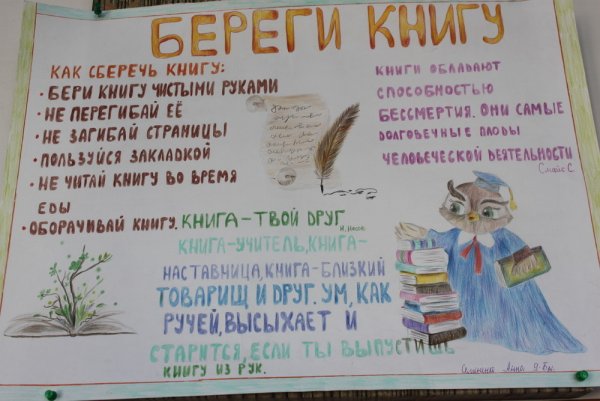 БЕРЕГИ КНИГУ
КАК СБЕРЕЧЬ КНИГУ:
• БЕРИ КНИГУ ЧИСТЫМИ РУКАМИ
• НЕ ПЕРЕГИБАЙ ЕЁ
• НЕ ЗАГИБАЙ СТРАНИЦЫ
• ПОЛЬЗУЙСЯ ЗАКЛАДКОЙ
• НЕ ЧИТАЙ КНИГУ ВО ВРЕМЯ
ЕДЫ
• ОБОРАЧИВАЙ КНИГУ.
КНИГИ ОБЛАДАЮТ
СПОСОБНОСТЬЮ
БЕССМЕРТИЯ. ОНИ САМЫЕ
ДОЛГОВЕЧНЫЕ ПЛОДЫ
ЧЕЛОВЕЧЕСКОЙ ДЕЯТЕЛЬНОСТИ
Смайс С.
КНИГА-ТВОЙ ДРУГ
КНИГА-УЧИТЕЛЬ, КНИГА-
НАСТАВНИЦА, КНИГА-БЛИЗКИЙ
ТОВАРИЩ И ДРУГ. УМ, КАК
РУЧЕЙ, ВЫСЫХАЕТ И
СТАРИТСЯ, ЕСЛИ ТЫ ВЫПУСТИШЬ
КНИГУ ИЗ РУК.
Анна